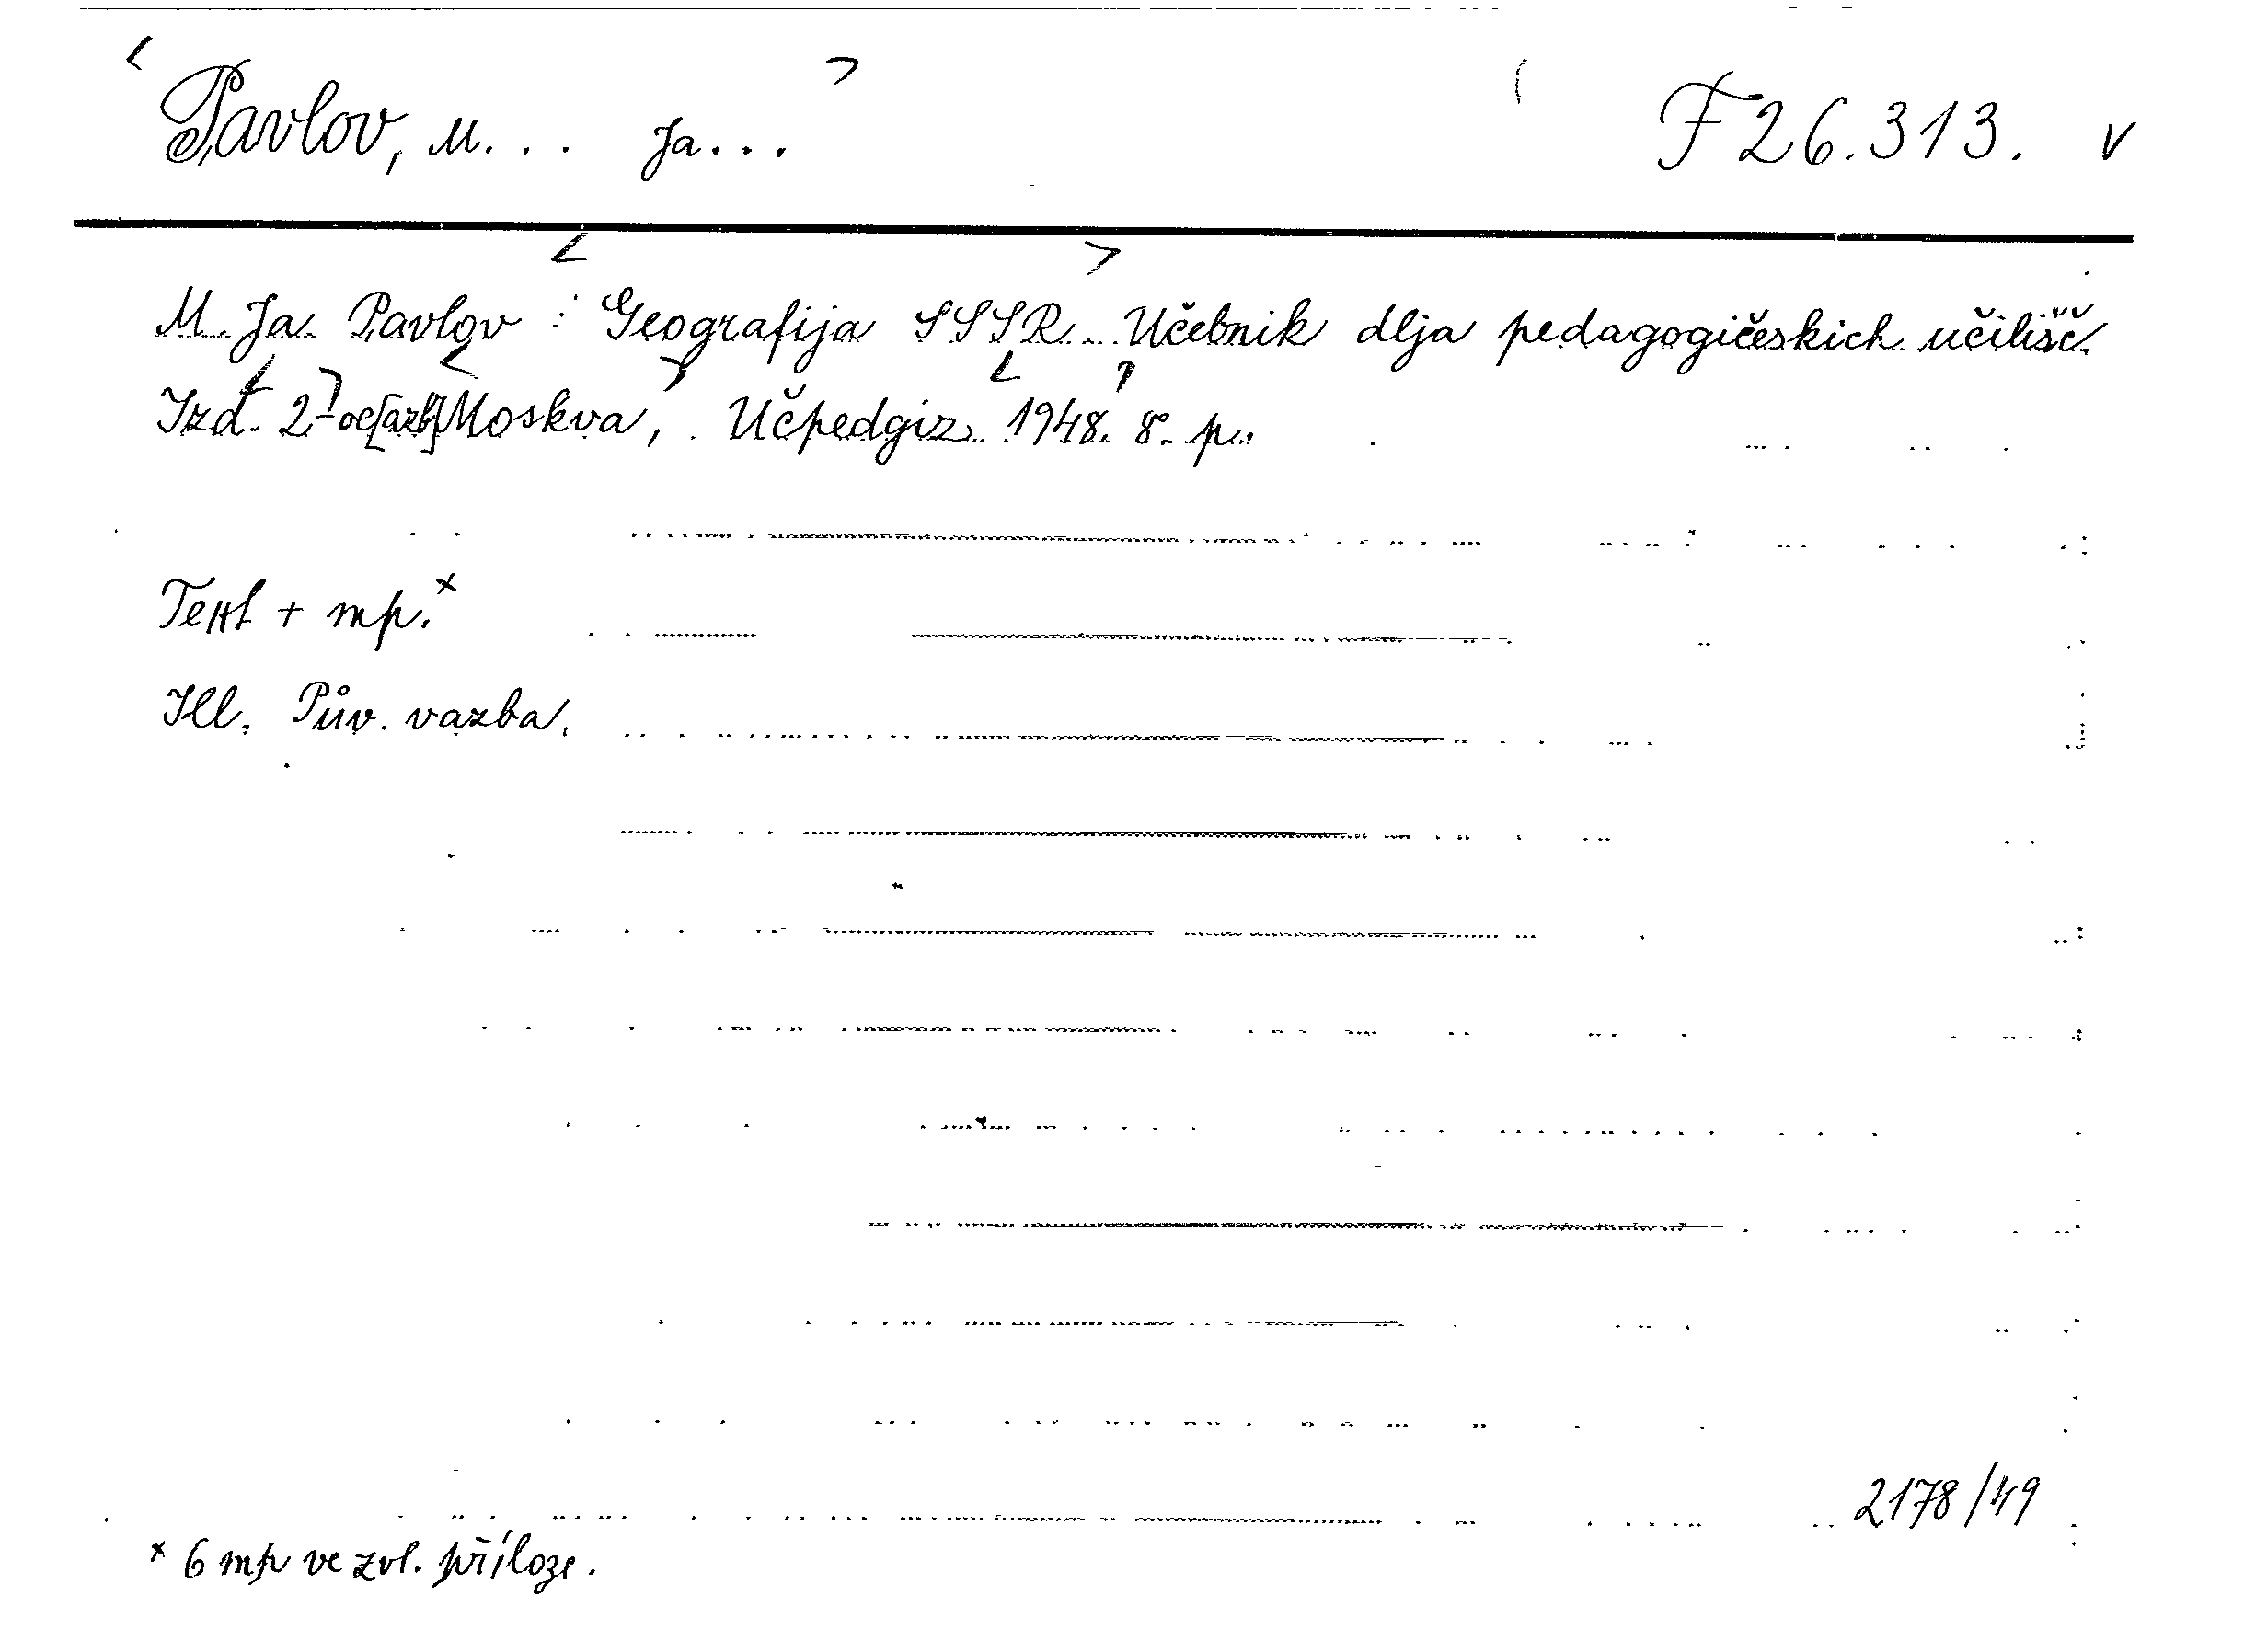 Pavlov, M... Ja... F 26.313. v
M. Ja. Pavlov : Geografija SSSR. Učebnik dlja pedagogičeskich učilišč.
Izd. 2-oe [azb] Moskva, Učpedgiz. 1948. 8° p.
Text + mp.x
Ill. Pův. vazba.
2178/49
x 6 mp ve zvl. příloze.